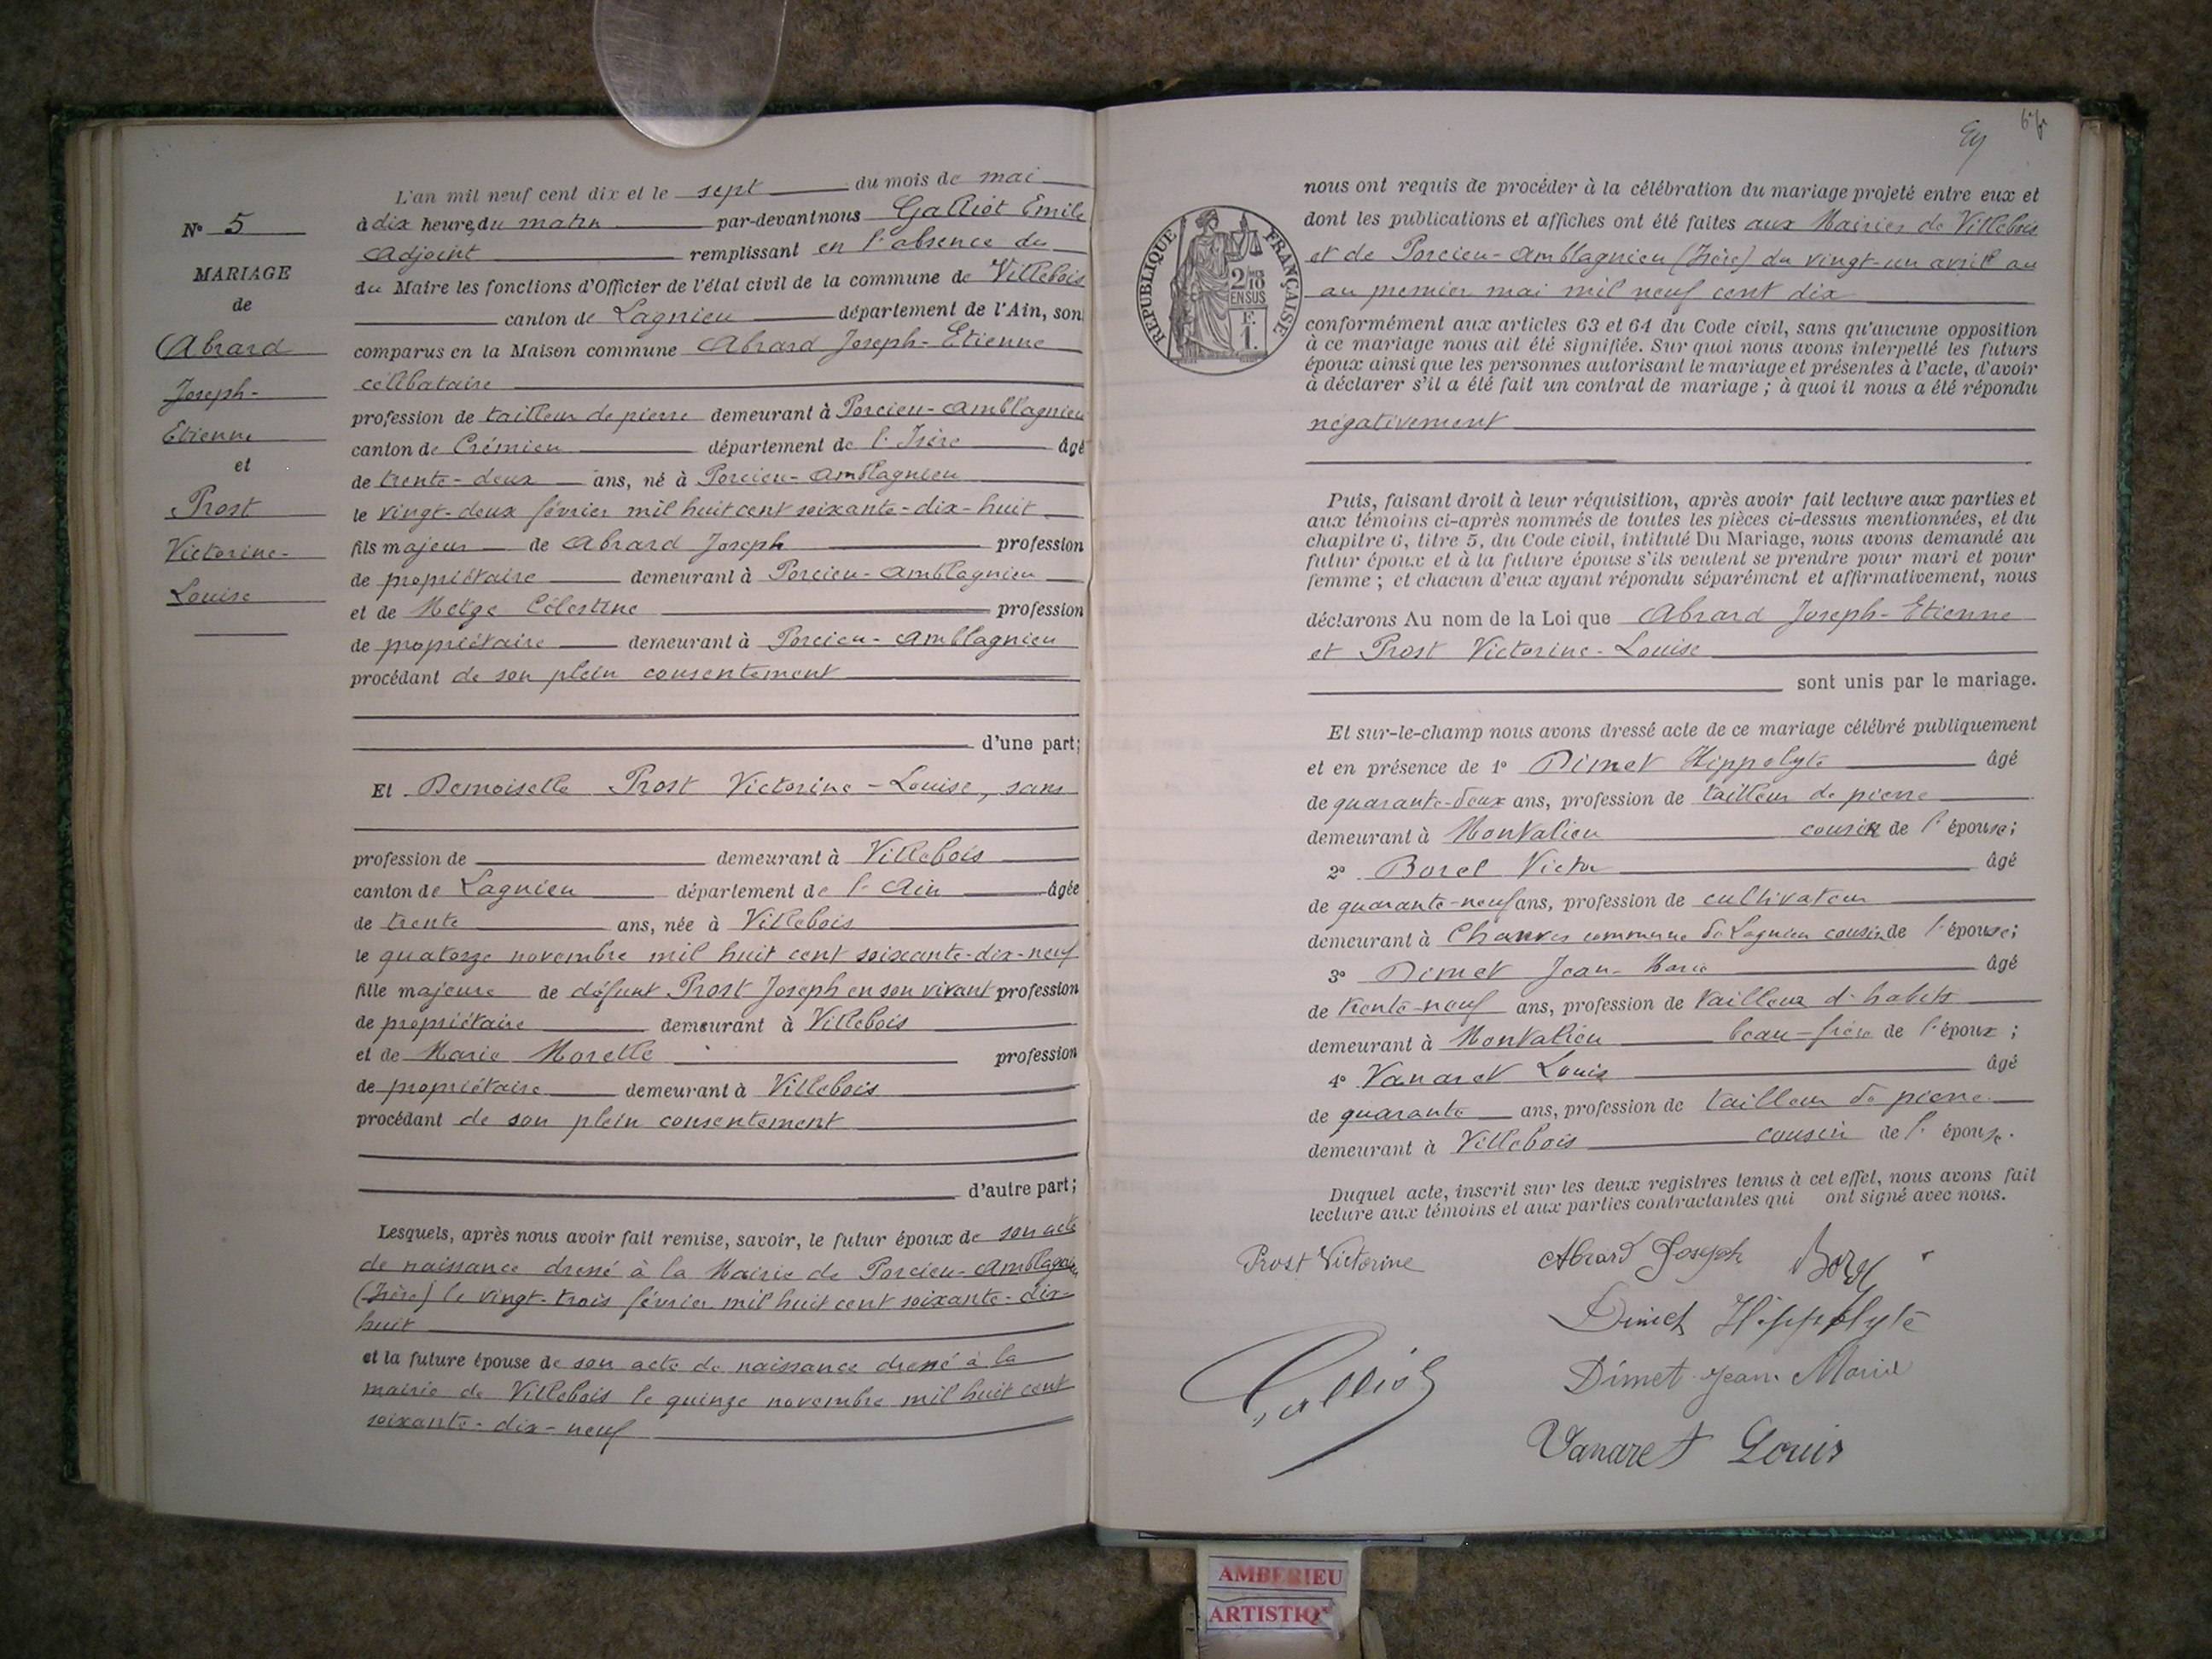 N° 5
MARIAGE
de
Abrard
Joseph-
Etienne
et
Prost
Victorine-
Louise
L'an mil neuf cent dix et le sept du mois de mai
à dix heures du matin par-devant nous Galliot Emile
Adjoint remplissant en l'absence du
du Maire les fonctions d'Officier de l'état civil de la commune de Villebois
canton de Lagnieu département de l'Ain, son
comparus en la Maison commune Abrard Joseph-Etienne
célibataire
profession de tailleur de pierre demeurant à Porcieu-Amblagnieu
canton de Crémieu département de l'Isère âgé
de trente-deux ans, né à Porcieu-Amblagnieu
le vingt-deux février mil huit cent soixante-dix-huit
fils majeur de Abrard Joseph profession
de propriétaire demeurant à Porcieu-Amblagnieu
et de Célestine profession
de propriétaire demeurant à Porcieu-Amblagnieu
procédant de son plein consentement
d'une part;
Et Demoiselle Prost Victorine-Louise, sans
profession de demeurant à Villebois
canton de Lagnieu département de l'Ain âgée
de trente ans, née à Villebois
le quatorze novembre mil huit cent soixante-dix-neuf
fille majeure de défunt Prost Joseph en son vivant profession
de propriétaire demeurant à Villebois
et de Marie Morelle profession
de propriétaire demeurant à Villebois
procédant de son plein consentement
d'autre part;
Lesquels, après nous avoir fait remise, savoir, le futur époux de son acte
de naissance dressé à la Mairie de Porcieu-Amblagnieu
(Isère) le vingt-trois février mil huit cent soixante-dix-
huit
et la future épouse de son acte de naissance dressé à la
mairie de Villebois le quinze novembre mil huit cent
soixante-dix-neuf
nous ont requis de procéder à la célébration du mariage projeté entre eux et
dont les publications et affiches ont été faites aux Mairies de Villebois
et de Porcieu-Amblagnieu (Isère) du vingt-un avril au
au premier mai mil neuf cent dix
RÉPUBLIQUE FRANÇAISE
2/10
EN SUS
F.
1.
conformément aux articles 63 et 64 du Code civil, sans qu'aucune opposition
à ce mariage nous ait été signifiée. Sur quoi nous avons interpellé les futurs
époux ainsi que les personnes autorisant le mariage et présentes à l'acte, d'avoir
à déclarer s'il a été fait un contrat de mariage ; à quoi il nous a été répondu
négativement
Puis, faisant droit à leur réquisition, après avoir fait lecture aux parties et
aux témoins ci-après nommés de toutes les pièces ci-dessus mentionnées, et du
chapitre 6, titre 5, du Code civil, intitulé Du Mariage, nous avons demandé au
futur époux et à la future épouse s'ils veulent se prendre pour mari et pour
femme ; et chacun d'eux ayant répondu séparément et affirmativement, nous
déclarons Au nom de la Loi que Abrard Joseph-Etienne
et Prost Victorine-Louise
sont unis par le mariage.
Et sur-le-champ nous avons dressé acte de ce mariage célébré publiquement
et en présence de 1° Dimet Hippolyte âgé
de quarante-deux ans, profession de tailleur de pierre
demeurant à Montalieu cousin de l'épouse;
2° Borel Victor âgé
de quarante-neuf ans, profession de cultivateur
demeurant à commune de Lagnieu cousin de l'épouse;
3° Dimet Jean-Marie âgé
de trente-neuf ans, profession de tailleur d'habits
demeurant à Montalieu beau-frère de l'époux ;
4° Vanaret Louis âgé
de quarante ans, profession de tailleur de pierre
demeurant à Villebois cousin de l'épouse.
Duquel acte, inscrit sur les deux registres tenus à cet effet, nous avons fait
lecture aux témoins et aux parties contractantes qui ont signé avec nous.
Prost Victorine Abrard Joseph Borel
Dimet Hippolyte
Galliot
Dimet Jean Marie
Vanaret Louis
AMBERIEU
ARTISTIQ